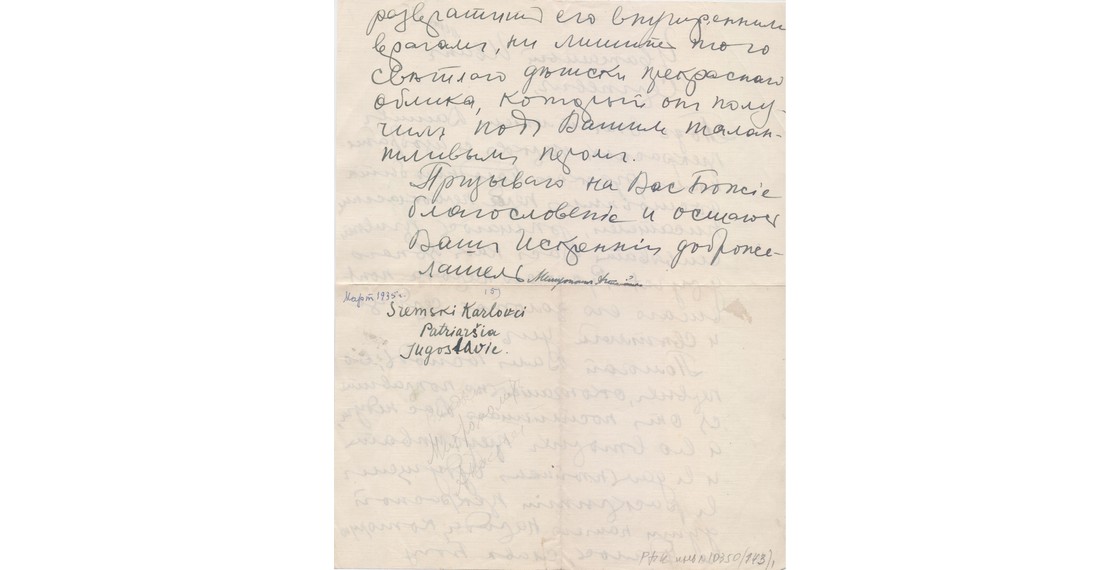 развратится его внутренними
врагами, ни лишится того
свѣтлаго дѣтски прекраснаго
облика, который онъ полу-
чилъ подъ Вашимъ талан-
тливымъ перомъ.
Призываю на Вас Божіе
благословеніе и остаюсь
Вашъ Искренній доброже-
латель Митрополит
Март 1935 г.
Sremski Karlovci
Patriaršia
Jugoslavie.